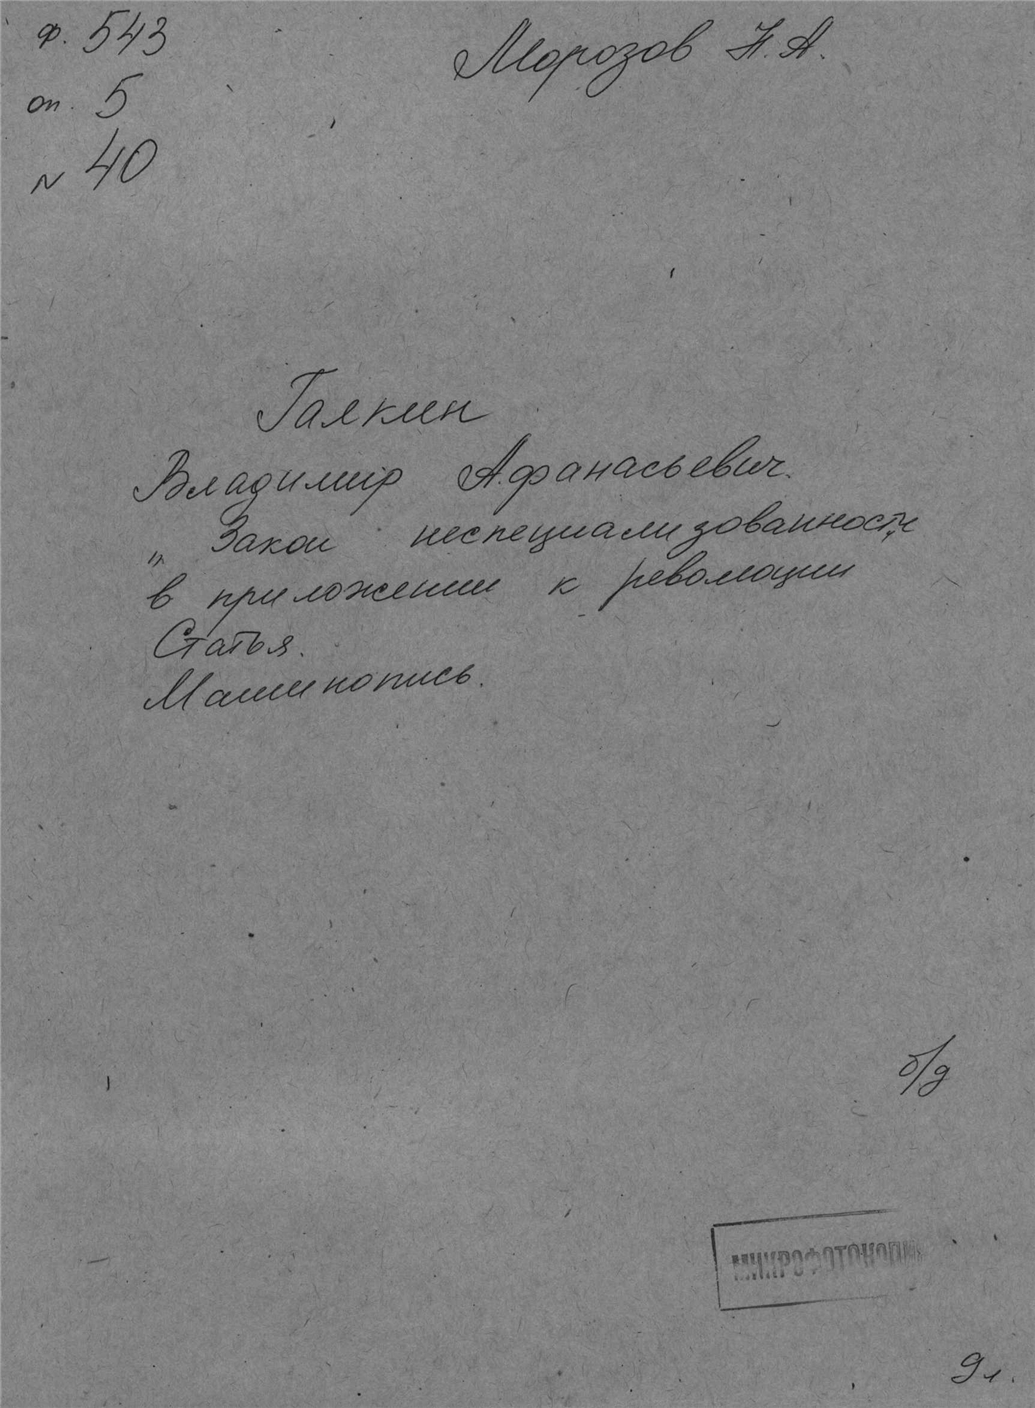 ф. 543
Морозов Н. А.
оп. 5
№ 40
Галкин
Владимир Афанасьевич.
„ Закон неспециализованности
в приложении к революции
Статья.
Машинопись.
б/д
МИКРОФОТОКОПИ
9 л.